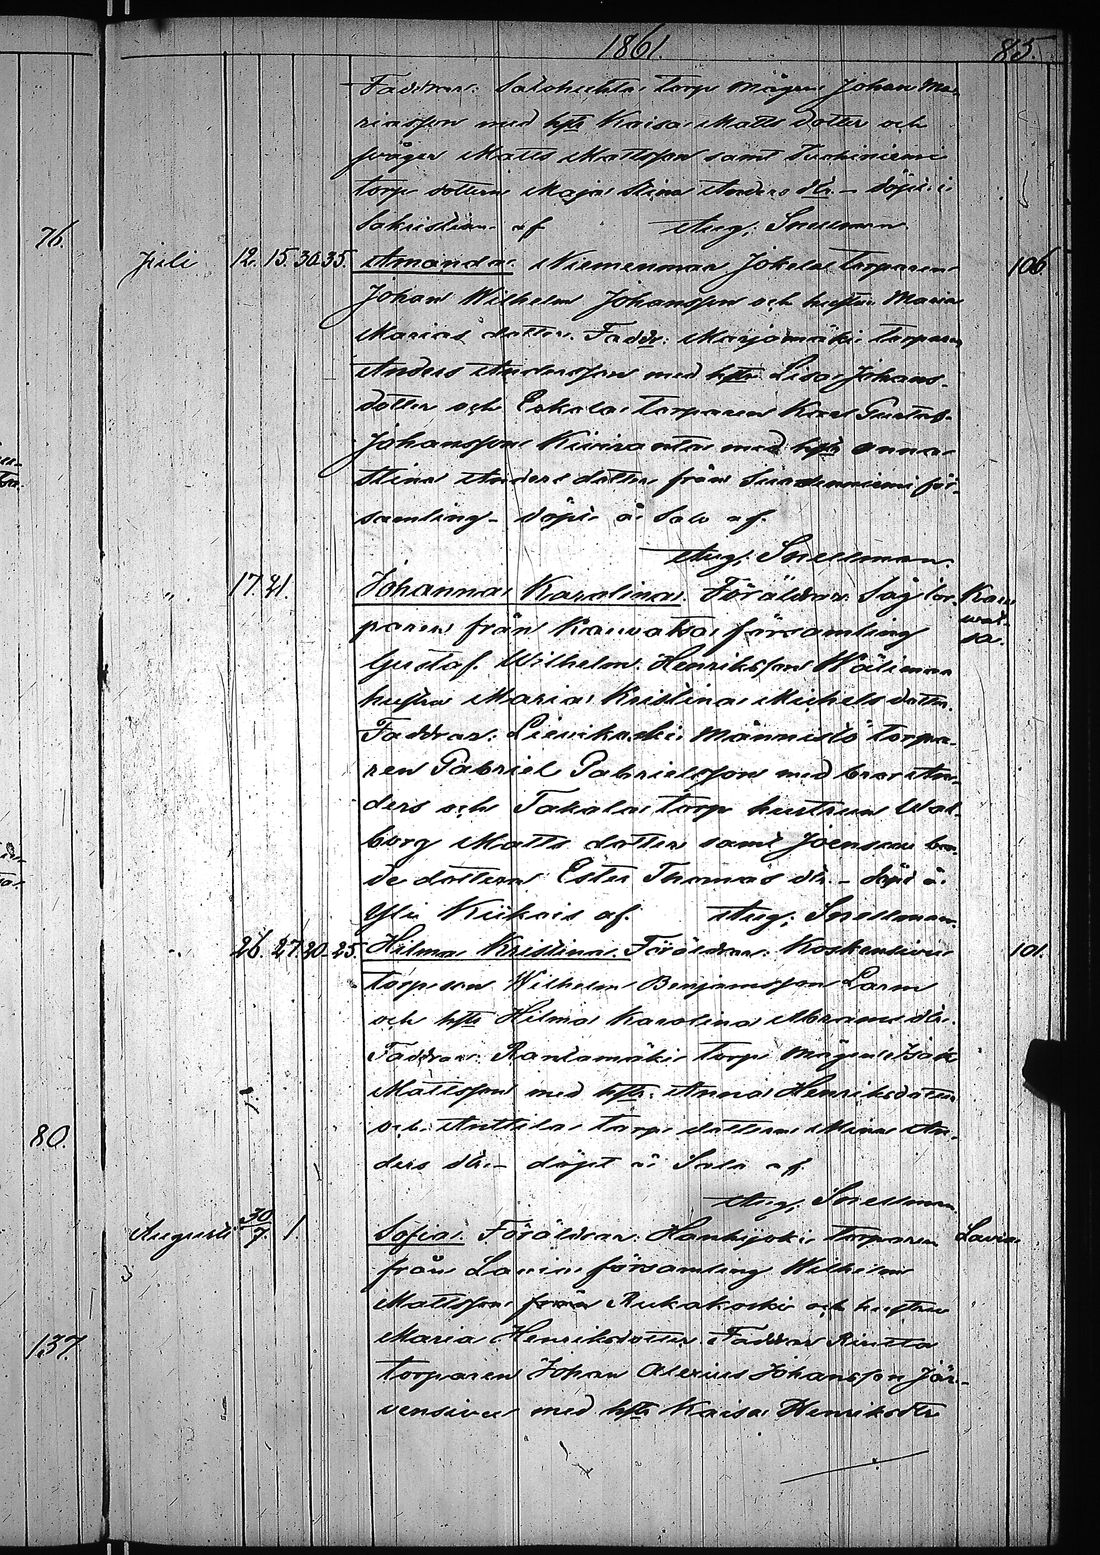 1861.
85.
Faddrar: Salohuhta torp mågen Johan Ma-
riasson med hstr Kaisa Matts dotter och
svåger Matts Mattsson samt
torp dottern Maja Stina Anders dtr – döpt i
Sakristian af Aug. Snellman
76.
Juli 12. 15. 30. 35. Amanda. Niemenmaa Jokela torparen 106.
Johan Wilhelm Johansson och hustru Maria
Marias dotter. Faddr: Marjamäki torparen
Anders Andersson med hstr Lisa Johans-
dotter och Eskola torparen Karl Gustaf
Johansson Kiviranta med hstr Anna
Stina Anders dotter från Suodenniemi för-
samling – döpt å Salo af
Aug. Snellman.
" 17. 21. Johanna Karolina. Föräldrar: Såg tor- Kau
paren från Kauvatsa församling wat-
sa.
Gustaf Wilhelm Henriksson Wälimaa
hustru Maria Kristina Michels dotter.
Faddrar: Lievikoski Männistö torpa-
ren Gabriel Gabrielsson med bror An-
ders och Takala torp hustrun Wal-
borg Matts dotter samt Joensuu bon-
de dottern Ester Thomas dtr. – döpt å
Yli Kiikois af Aug. Snellman.
" 26. 27. 20. 25. Hilma Kristina. Föräldrar: Koskensivu 101.
torparen Wilhelm Benjamsson Larm
och hstr Hilma Karolina Abrams dtr.
Faddrar: Rantamäki torp mågen Isak
Mattsson med hstr. Anna Henriksdotter
och Anttila torp dottern Mina An-
ders dtr – döpt å Salo af
80.
Aug. Snellman.
Augusti 30/7. 1. Sofia. Föräldrar: Hanhijoki torparen Lavia
från Lavia församling Wilhelm
Mattsson från Riukakoski och hustru
Maria Henriksdotter. Faddrar
137.
torparen Johan Alexius Johansson Jär-
vensivu med hstr Kaisa Henriksdtr